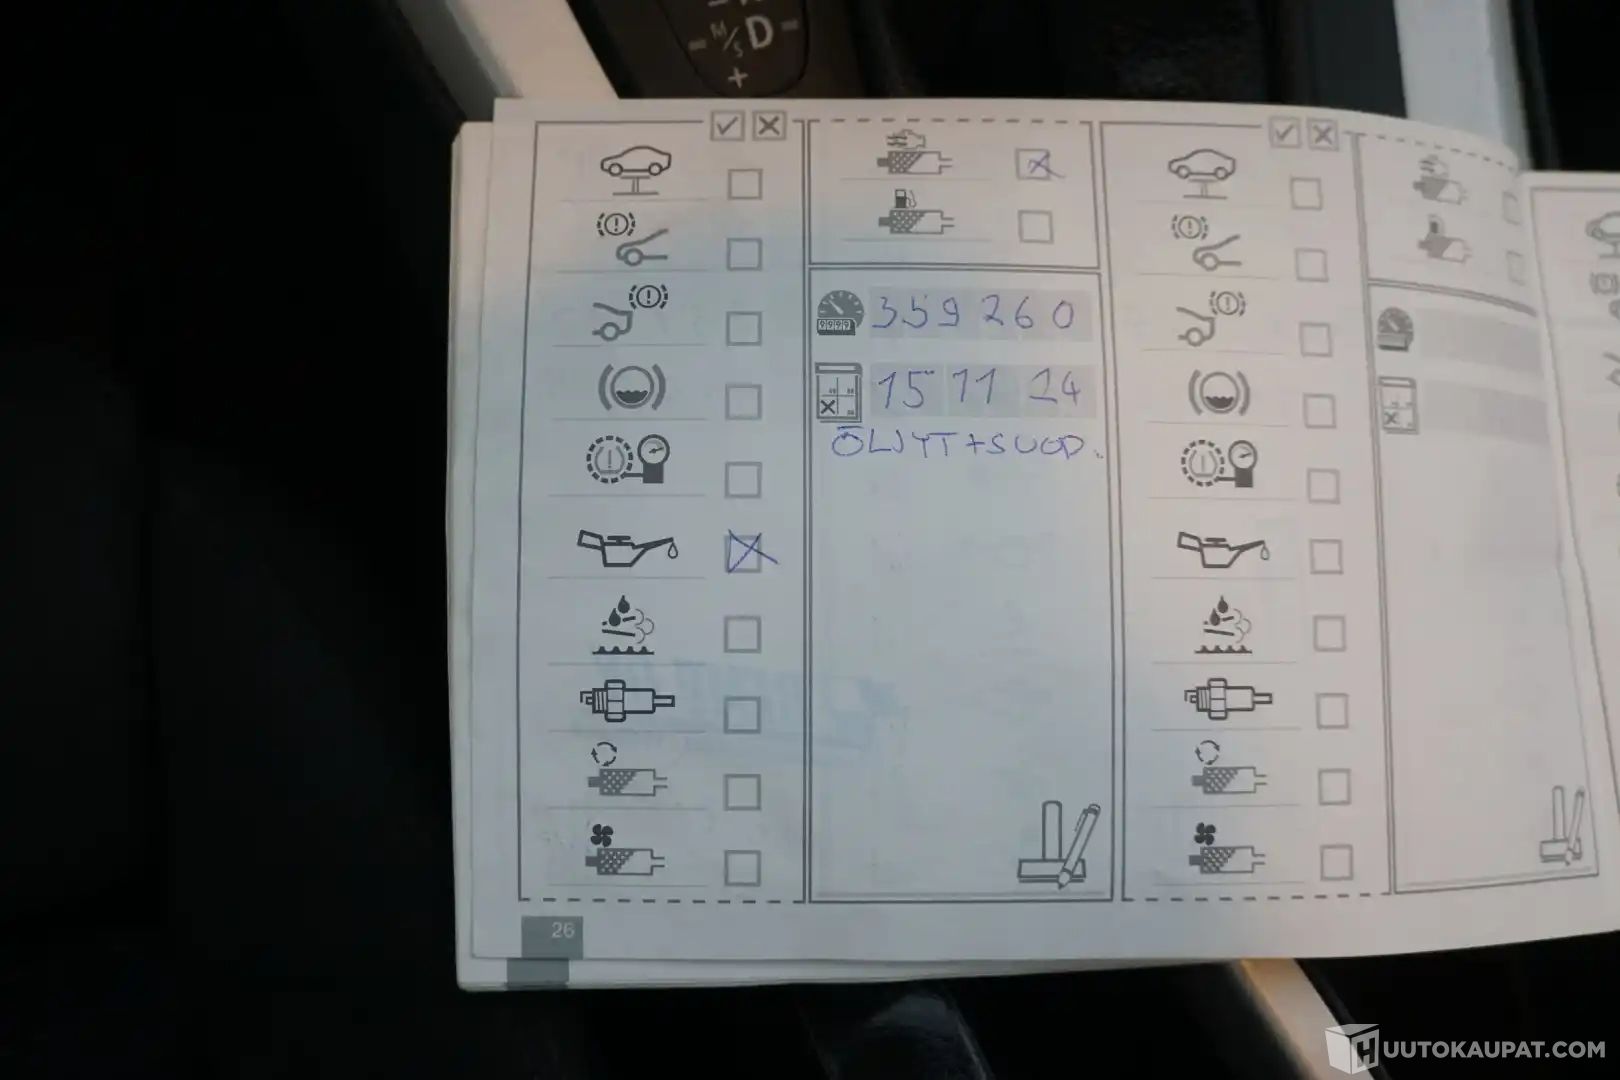 M/S D
+
359 260
9999
15 11 24
ÖLJYT+SUOD.
26
HUUTOKAUPAT.COM